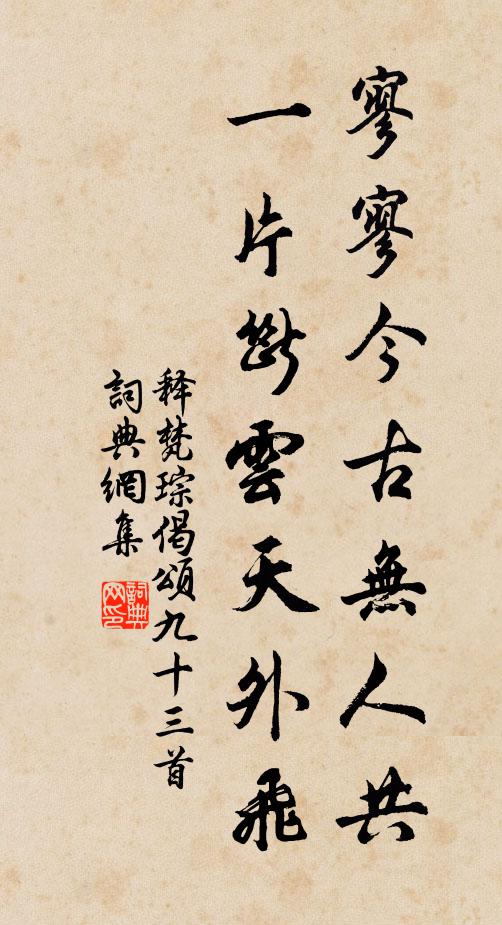 寥寥今古無人共
一片斷雲天外飛
释梵琮偈頌九十三首
詞典網集
詞典网印